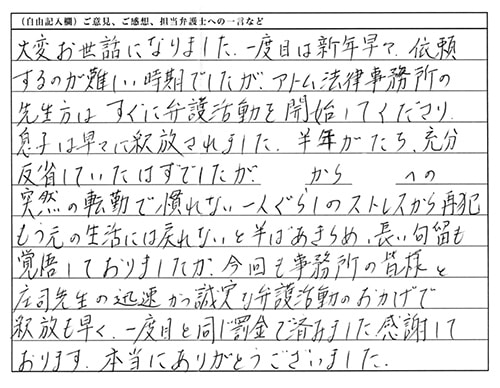 （自由記入欄）ご意見、ご感想、担当弁護士への一言など
大変お世話になりました。一度目は新年早々で、依頼
するのが難しい時期でしたが、アトム法律事務所の
先生方はすぐに弁護活動を開始してくださり、
息子は早々に釈放されました。半年がたち、充分
反省していたはずでしたが、　　から　　への
突然の転勤で慣れない一人ぐらしのストレスから再犯
もう元の生活には戻れないと半ばあきらめ、長い勾留も
覚悟しておりましたが、今回も事務所の皆様と
庄司先生の迅速かつ誠実な弁護活動のおかげで
釈放も早く、一度目と同じ罰金で済みました。感謝して
おります。本当にありがとうございました。